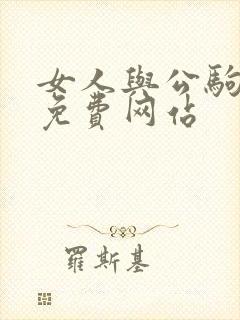 女人與公駒
免費网占
羅斯基